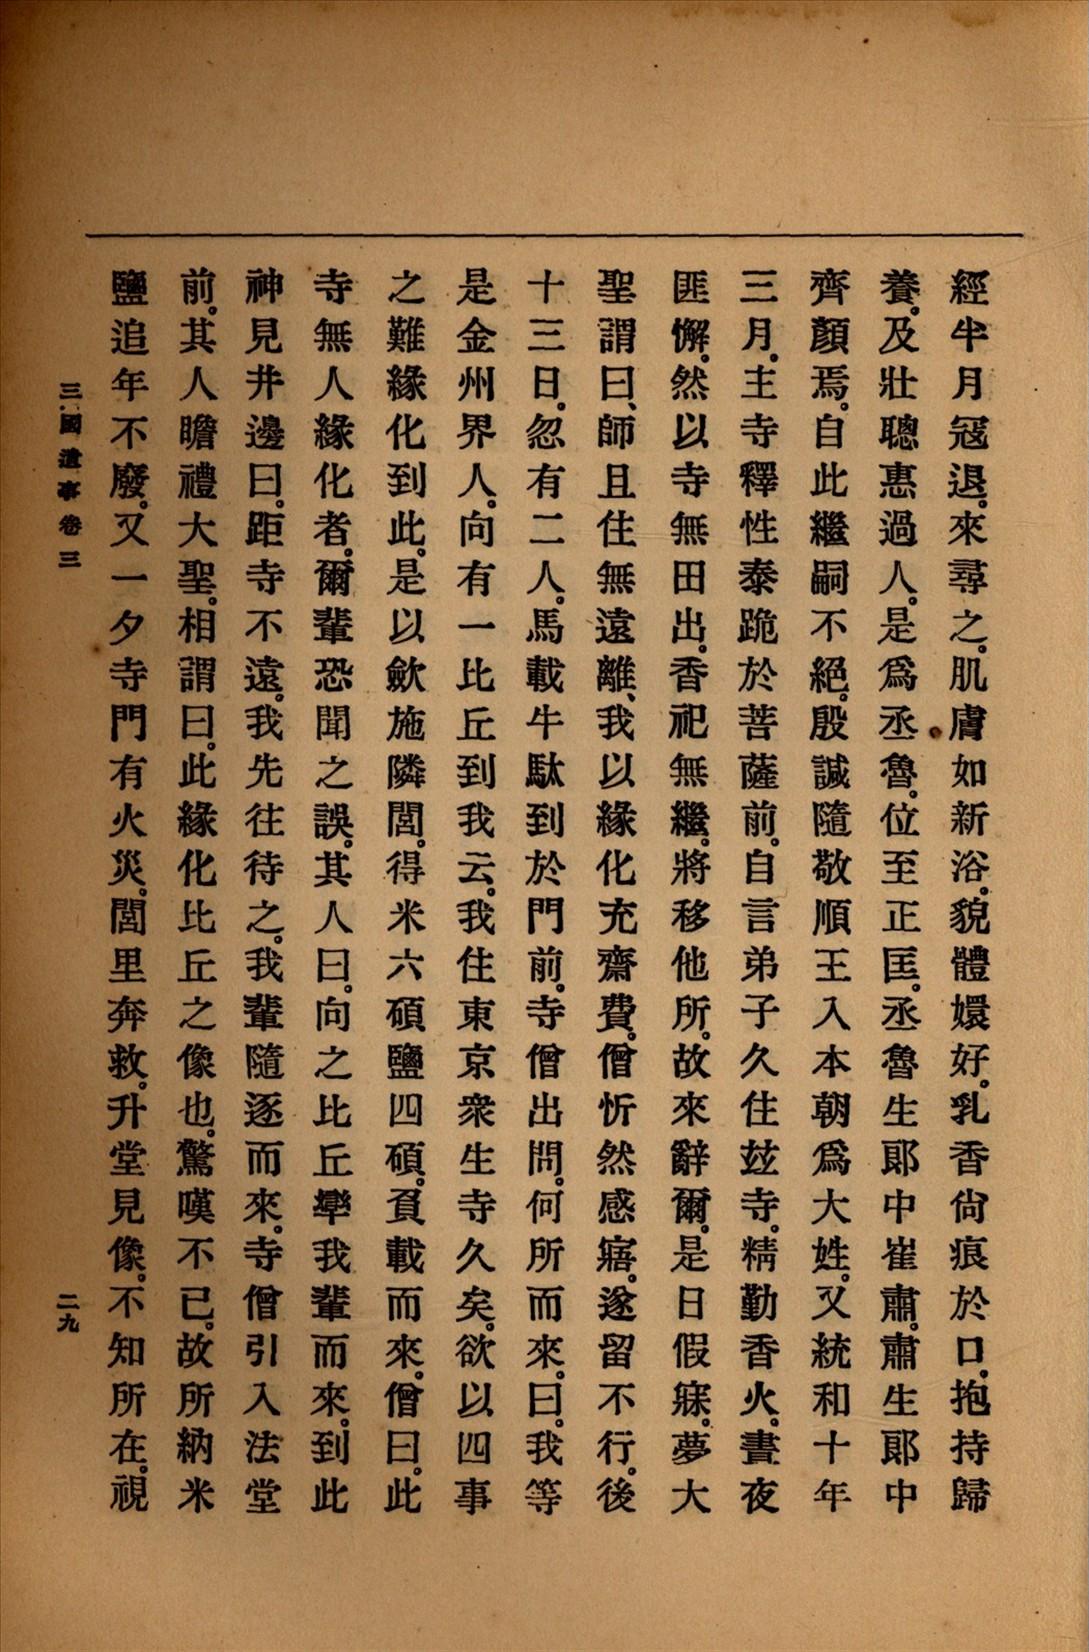 經半月冦退。來尋之。肌膚如新浴。貌體嬛好。乳香尙痕於口。抱持歸
養。及壯聰惠過人。是爲丞魯。位至正匡。丞魯生郞中崔肅。肅生郞中
齊顏焉。自此繼嗣不絕。殷誠隨敬順王入本朝爲大姓。又統和十年
三月。主寺釋性泰跪於菩薩前。自言弟子久住玆寺。精勤香火。晝夜
匪懈。然以寺無田出。香祀無繼。將移他所。故來辭爾。是日假寐。夢大
聖謂曰、師且住無遠離、我以緣化充齋費。僧忻然感寤。遂留不行。後
十三日。忽有二人。馬載牛馱到於門前。寺僧出問。何所而來。曰。我等
是金州界人。向有一比丘到我云。我住東京衆生寺久矣。欲以四事
之難緣化到此。是以歛施隣閭。得米六碩鹽四碩。負載而來。僧曰。此
寺無人緣化者。爾輩恐聞之誤。其人曰。向之比丘率我輩而來。到此
神見井邊曰。距寺不遠。我先往待之。我輩隨逐而來。寺僧引入法堂
前。其人瞻禮大聖。相謂曰。此緣化比丘之像也。驚嘆不已。故所納米
鹽追年不廢。又一夕寺門有火災。閭里奔救。升堂見像。不知所在。視
三國遺事卷三
二九